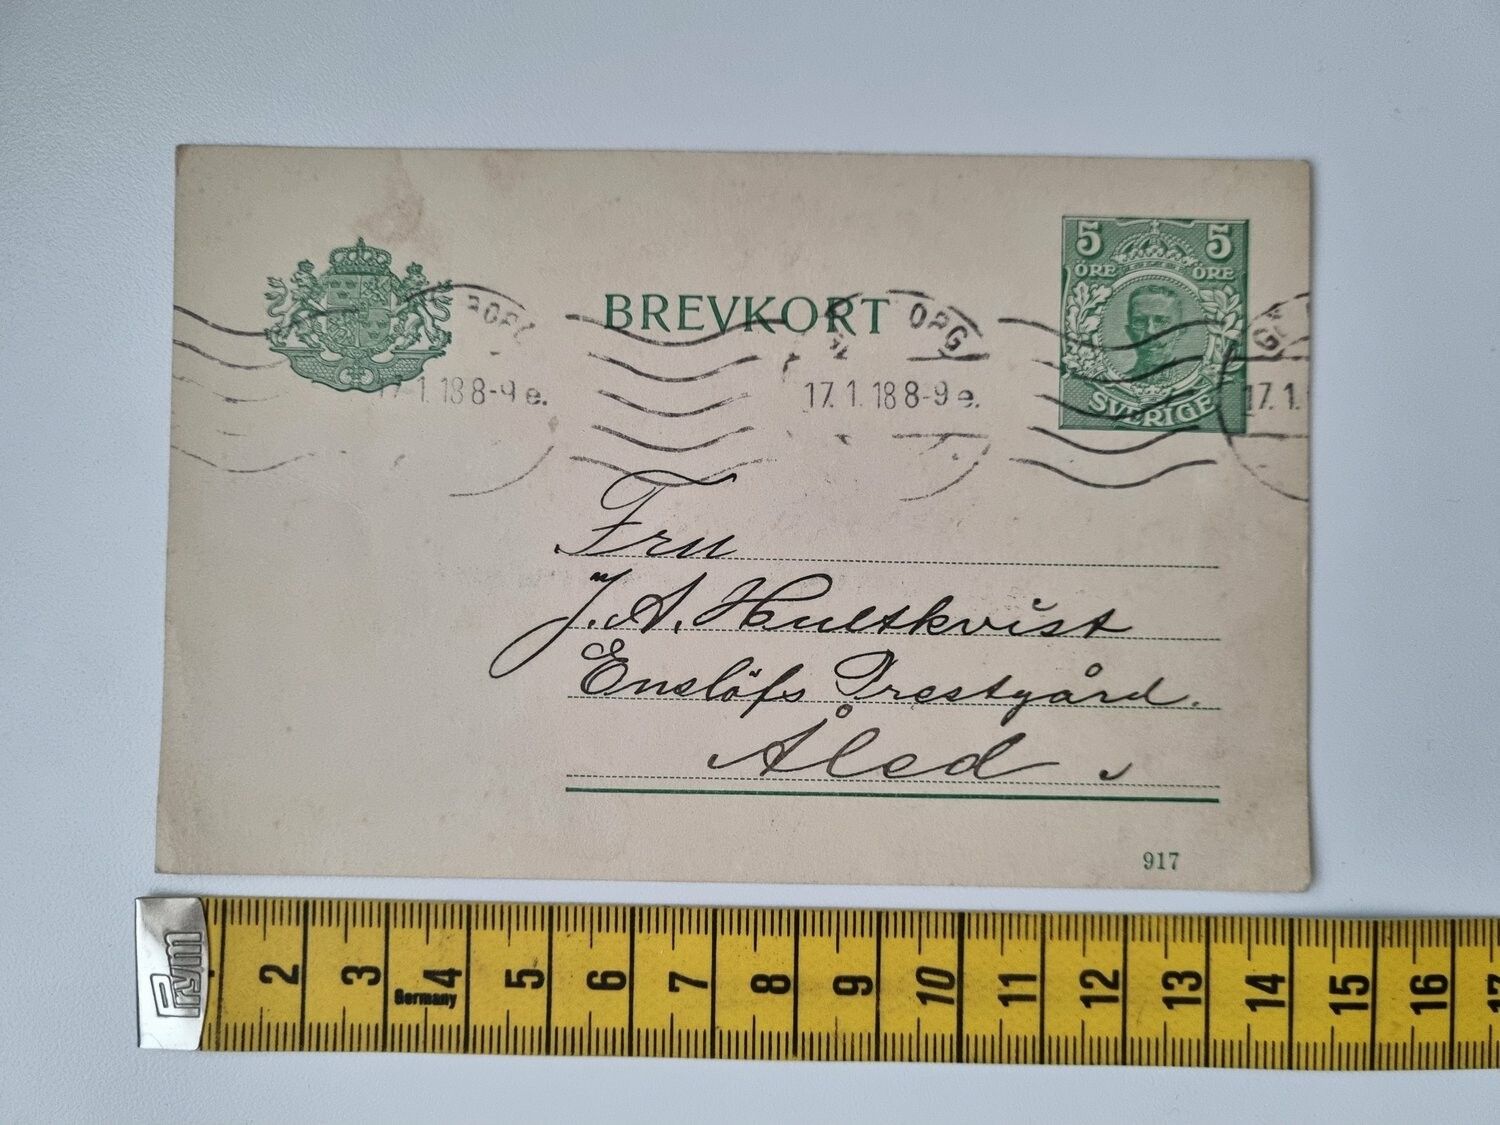 5 5
ÖRE ÖRE
BREVKORT
SVERIGE
BORG
ORG
GÖ
17.1.18 8-9 e.
17.1.18 8-9 e.
17.1.
Fru
J. A. Hultkvist
Enslöfs Prestgård.
Åled.
917
Prym
2 3 4 5 6 7 8 9 10 11 12 13 14 15 16 17
Germany